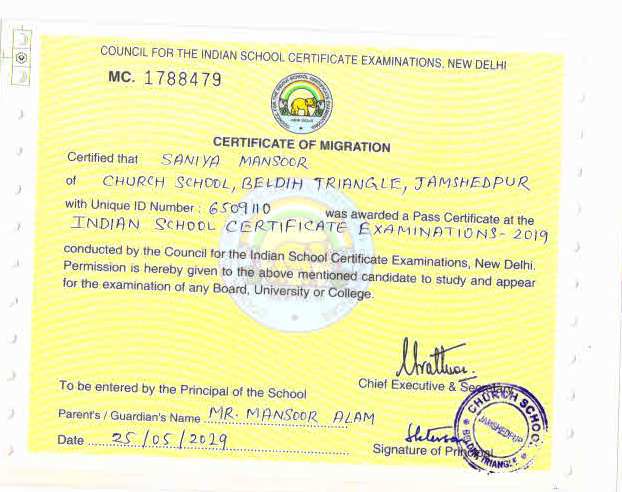 COUNCIL FOR THE INDIAN SCHOOL CERTIFICATE EXAMINATIONS, NEW DELHI
MC. 1788479
COUNCIL FOR THE INDIAN SCHOOL CERTIFICATE EXAMINATIONS
NEW DELHI
CERTIFICATE OF MIGRATION
Certified that SANIYA MANSOOR
of CHURCH SCHOOL, BELDIH TRIANGLE, JAMSHEDPUR
with Unique ID Number : 6509110 was awarded a Pass Certificate at the
INDIAN SCHOOL CERTIFICATE EXAMINATIONS- 2019
conducted by the Council for the Indian School Certificate Examinations, New Delhi.
Permission is hereby given to the above mentioned candidate to study and appear
for the examination of any Board, University or College.
Chief Executive & Secretary
To be entered by the Principal of the School
Parent's / Guardian's Name MR. MANSOOR ALAM
Date 25/05/2019
Signature of Principal
CHURCH SCHOOL
JAMSHEDPUR
BELDIH TRIANGLE